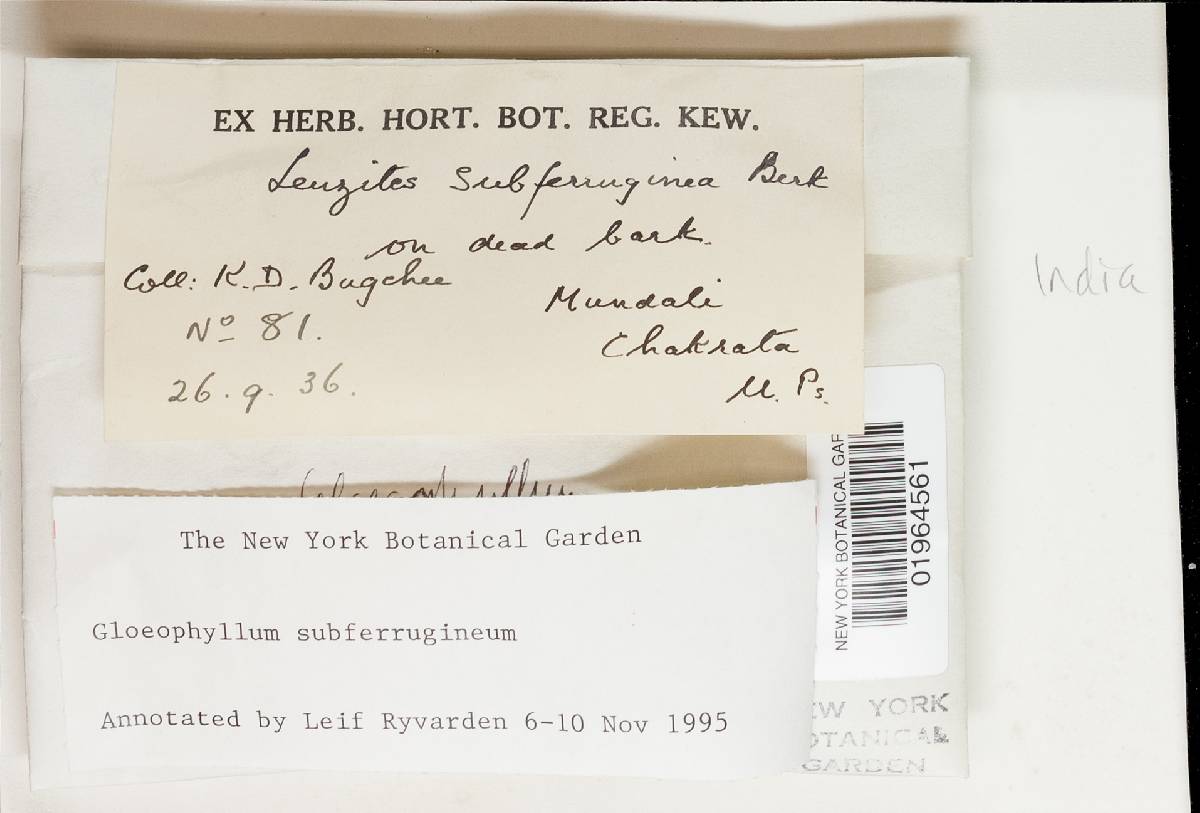 EX HERB. HORT. BOT. REG. KEW.
Lenzites subferruginea Berk
on dead bark.
Coll: K. D. Bagchee
No 81.
26. 9. 36.
Mundali
Chakrata
U. Ps.
India
Gloeophyllum
The New York Botanical Garden
Gloeophyllum subferrugineum
Annotated by Leif Ryvarden 6-10 Nov 1995
NEW YORK BOTANICAL GAR
01964561
EW YORK
OTANICAL
GARDEN